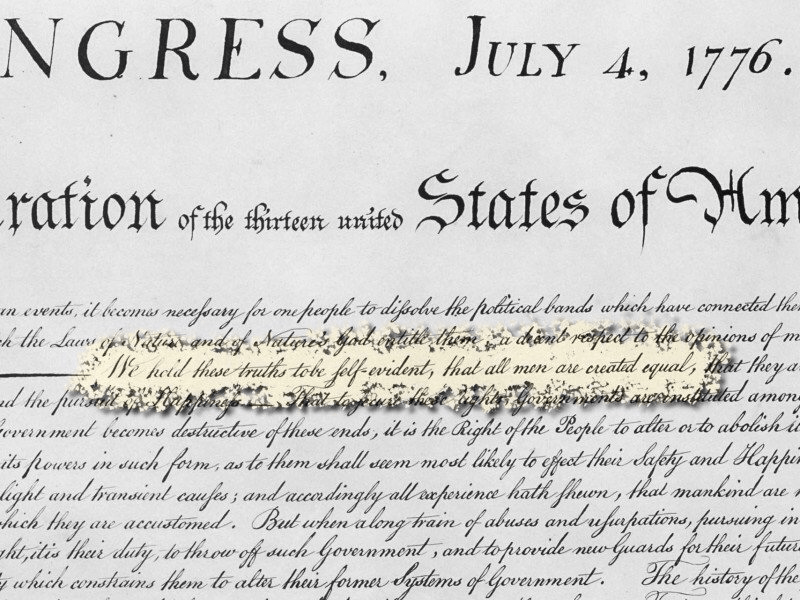 NGRESS, JULY 4, 1776.
ration of the thirteen united States of Am
an events, it becomes neceſsary for one people to diſsolve the political bands which have connected them
ch the Laws of Nature and of Nature's God entitle them, a decent respect to the opinions of m
We hold these truths to be ſelf-evident, that all men are created equal, that they ar
nd the pursuit of Happiness That to secure these rights, Governments are instituted among
Government becomes destructive of these ends, it is the Right of the People to alter or to abolish it
its powers in such form, as to them shall seem most likely to effect their Safety and Happin
light and transient cauſes; and accordingly all experience hath ſhewn, that mankind are m
which they are accustomed. But when a long train of abuses and uſurpations, pursuing in
ght, it is their duty, to throw off such Government, and to provide new Guards for their future
ty which constrains them to alter their former Systems of Government. The history of the